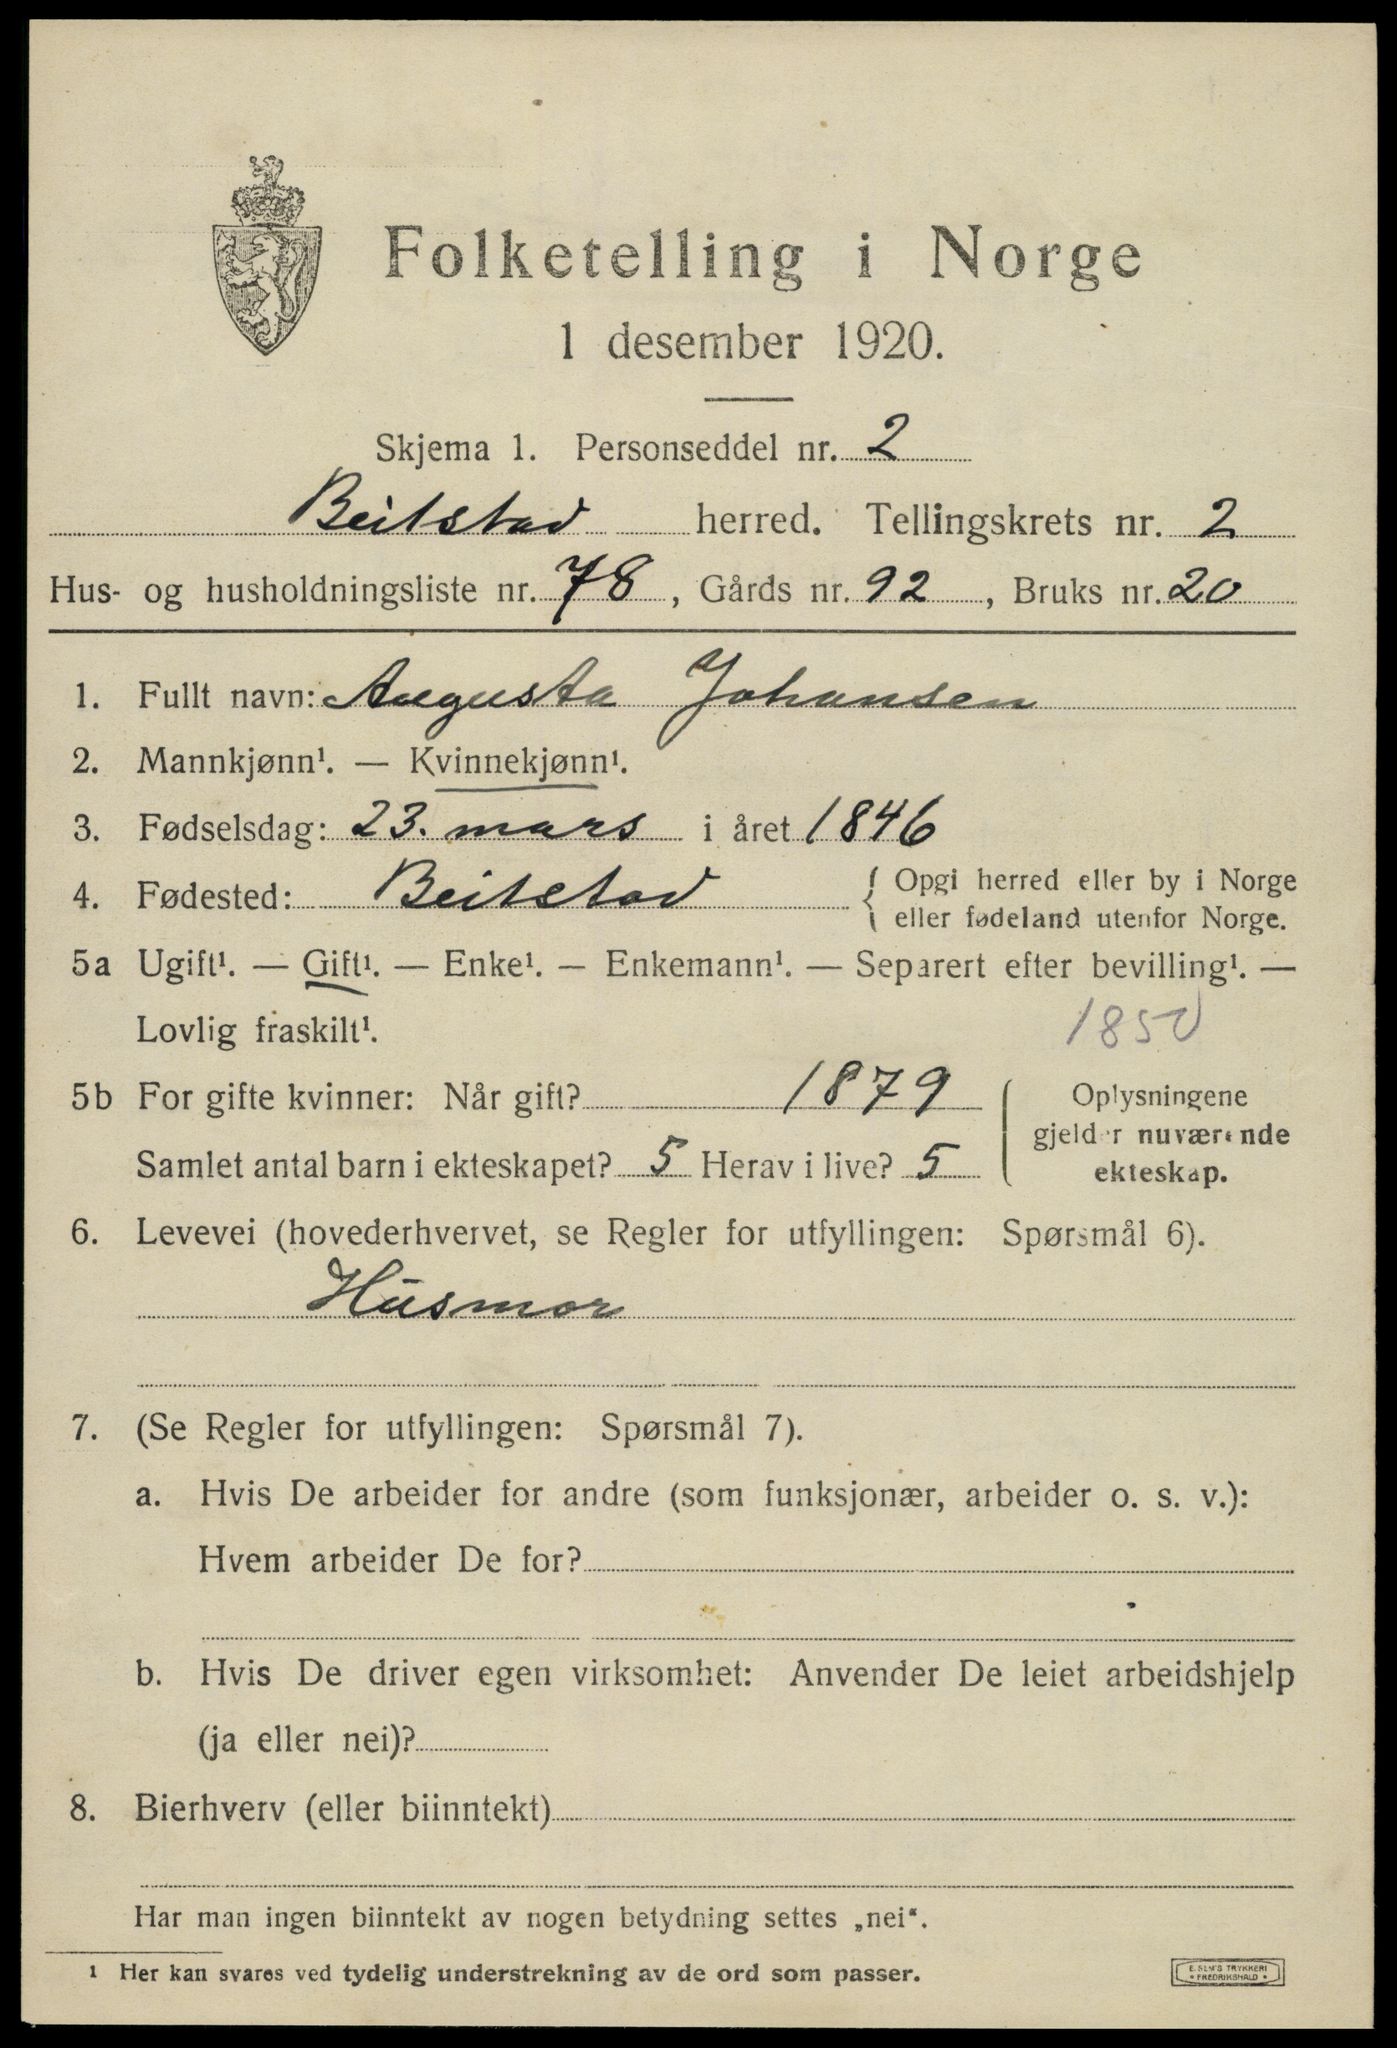 Folketelling i Norge
1 desember 1920.
Skjema 1. Personseddel nr. 2
Beitstad herred. Tellingskrets nr. 2
Hus- og husholdningsliste nr. 78, Gårds nr. 92, Bruks nr. 20
1. Fullt navn: Augusta Johansen
2. Mannkjønn¹. — Kvinnekjønn¹.
3. Fødselsdag: 23. mars i året 1846
4. Fødested: Beitstad { Opgi herred eller by i Norge
eller fødeland utenfor Norge.
5a Ugift¹. — Gift¹. — Enke¹. — Enkemann¹. — Separert efter bevilling¹. —
Lovlig fraskilt¹.
1850
5b For gifte kvinner: Når gift? 1879
Samlet antal barn i ekteskapet? 5 Herav i live? 5
Oplysningene
gjelder nuværende
ekteskap.
6. Levevei (hovederhvervet, se Regler for utfyllingen: Spørsmål 6).
Husmor
7. (Se Regler for utfyllingen: Spørsmål 7).
a. Hvis De arbeider for andre (som funksjonær, arbeider o. s. v.):
Hvem arbeider De for?
b. Hvis De driver egen virksomhet: Anvender De leiet arbeidshjelp
(ja eller nei)?
8. Bierhverv (eller biinntekt)
Har man ingen biinntekt av nogen betydning settes „nei“.
¹ Her kan svares ved tydelig understrekning av de ord som passer.
E. SEM'S TRYKKERI
• FREDRIKSHALD •